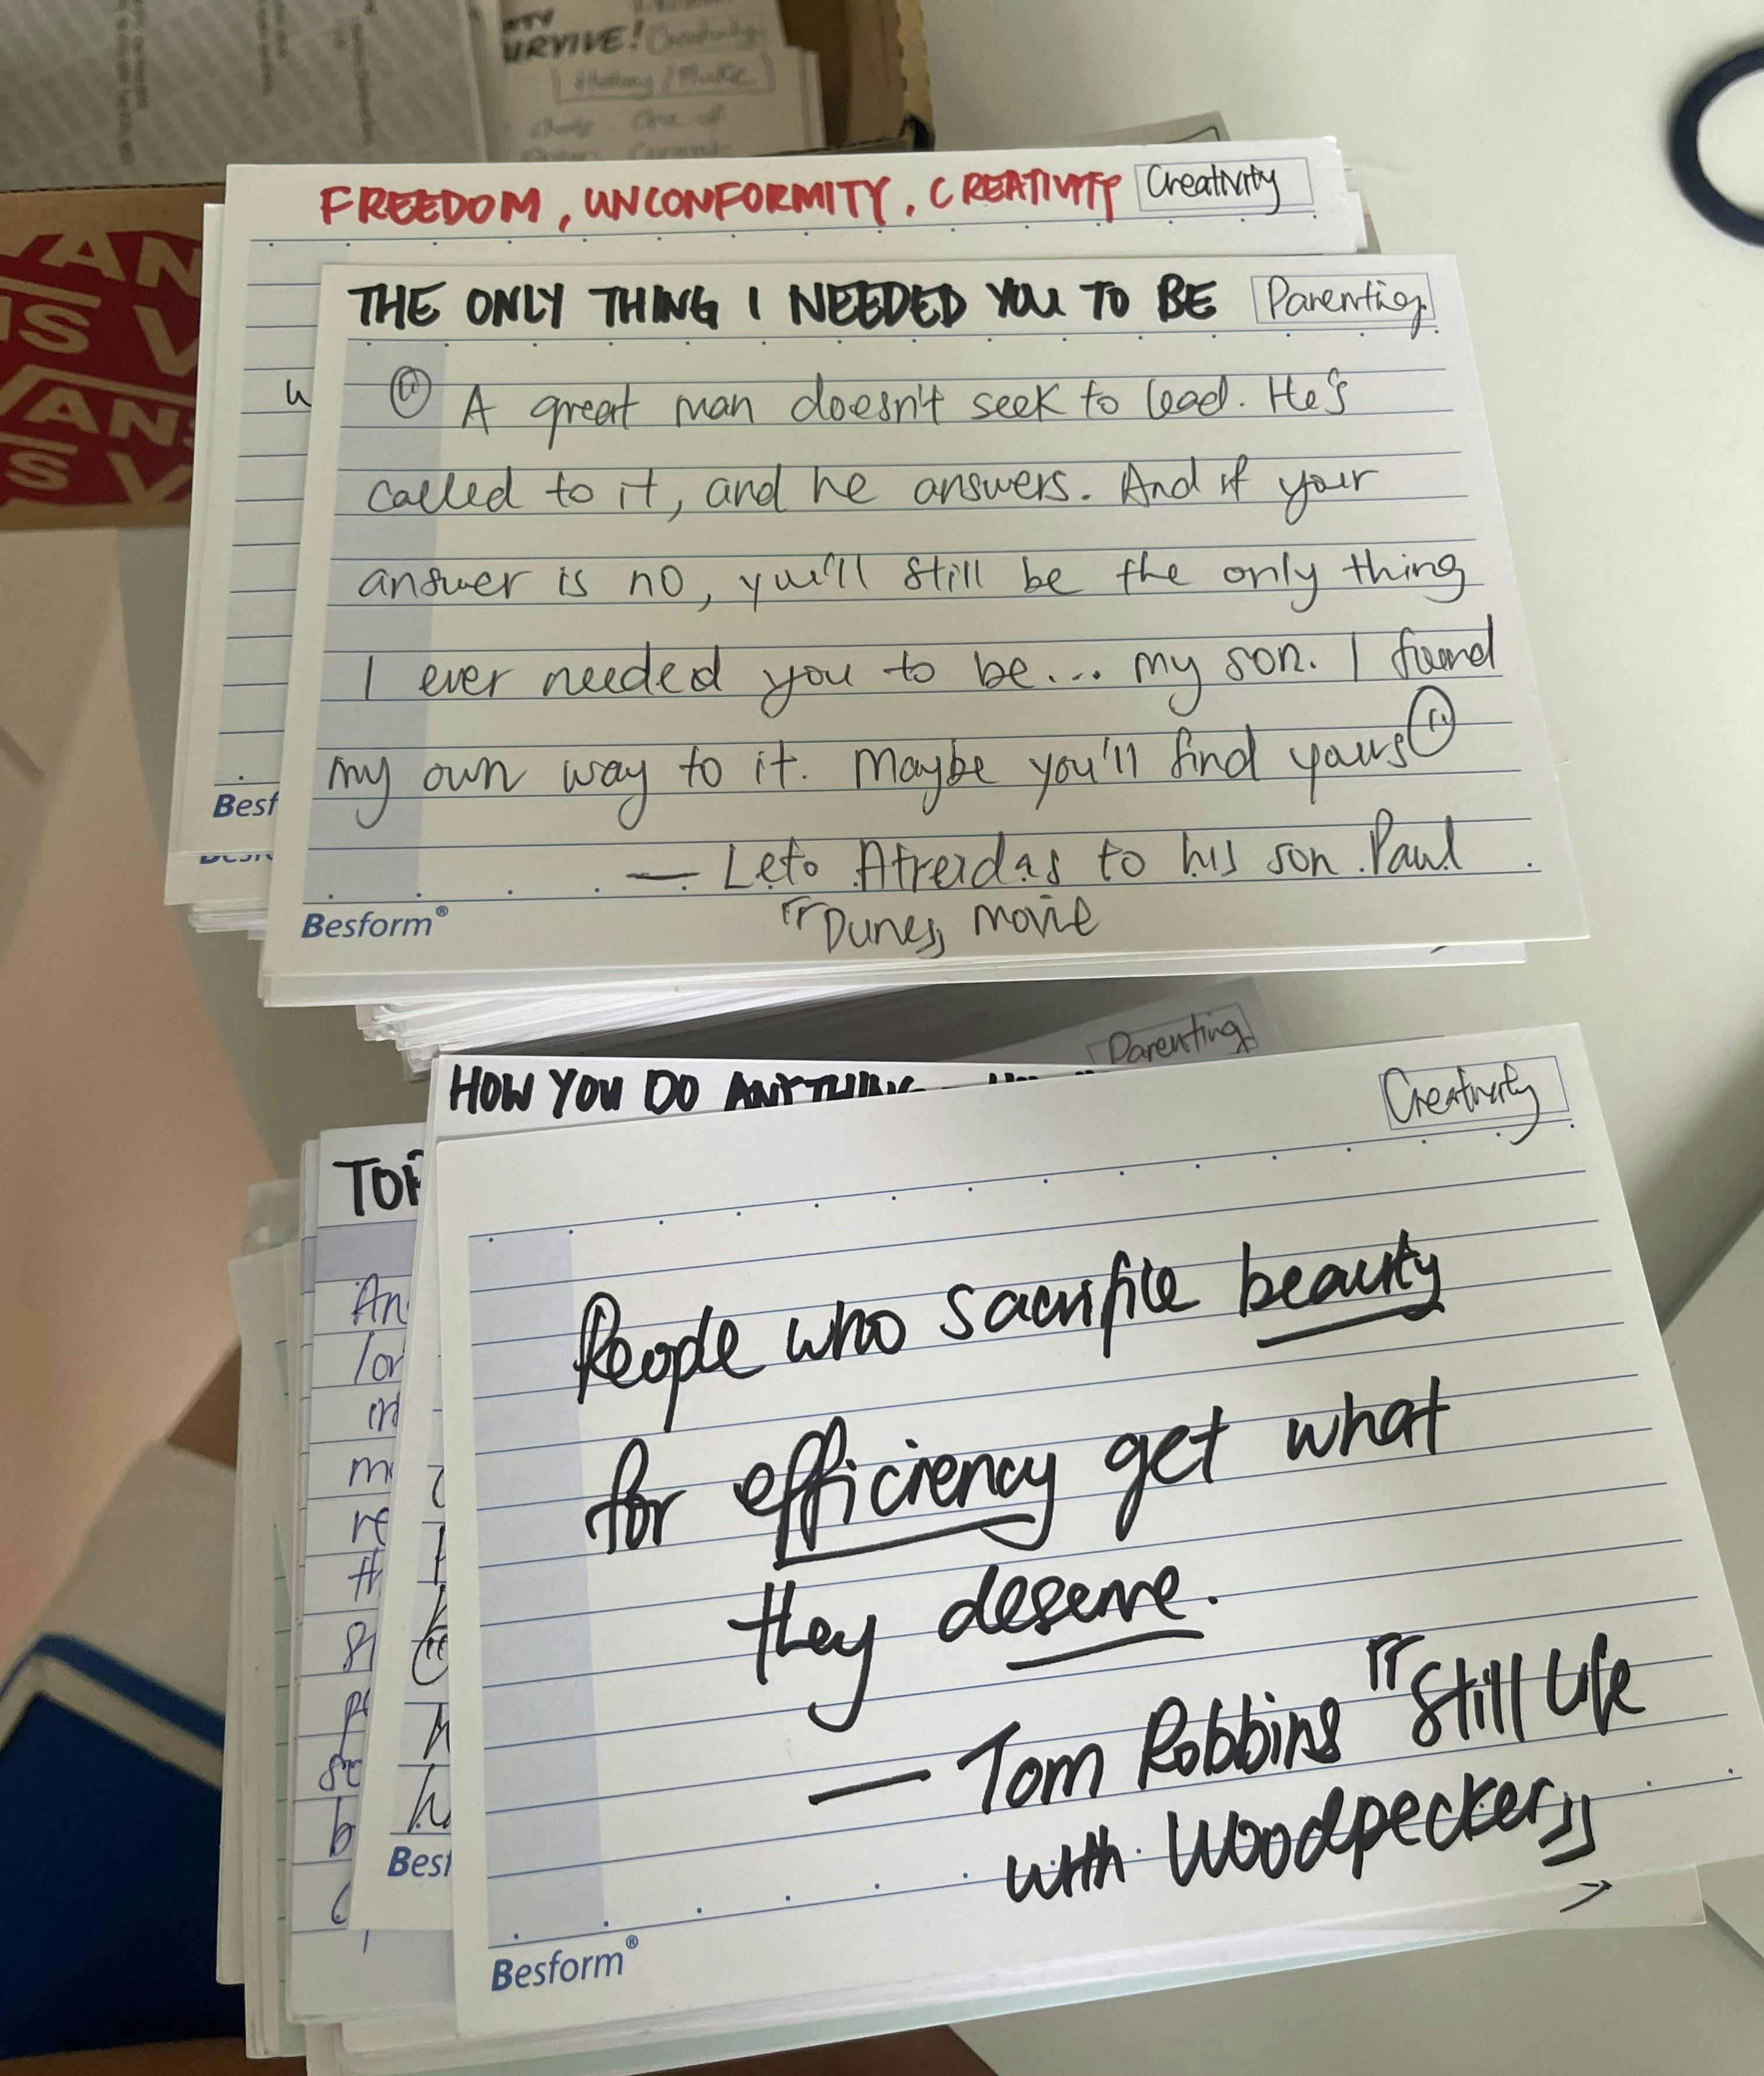 URVIVE! Creativity
FREEDOM, UNCONFORMITY, CREATIVITY Creativity
THE ONLY THING I NEEDED YOU TO BE Parenting
" A great man doesn't seek to lead. He's
called to it, and he answers. And if your
answer is no, you'll still be the only thing
I ever needed you to be... my son. I found
my own way to it. Maybe you'll find yours"
— Leto Atreidas to his son Paul
『Dune』 movie
Besform®
Besf
VANS
Parenting
HOW YOU DO ANYTHING
Creativity
People who sacrifice beauty
for efficiency get what
they deserve.
— Tom Robbins 『Still Life
with Woodpecker』
Besform®
Besf